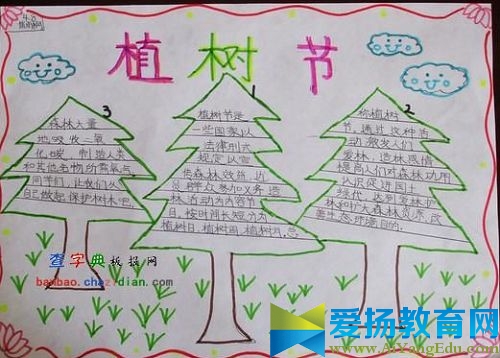 植树节
1
植树节是
一些国家以
法律形式
规定以宣
传森林效益,
群众参加义务造
林活动为内容节
日。按时间长短分为
植树日、植树周、植树月,总
2
称植树
节。通过这种活
动,激发人们
爱林、造林感情
提高人们对森林功用
认识促进国土
绿化,达到爱林护
林和扩大森林资源、改
善生态环境目的。
3
森林大量
地吸收二氧
化碳,制造人类
和其他生物所需氧气
同学们,让我们从
自己做起,保护树木吧
查字典板报网
banbao.chazidian.com
爱扬教育网
www.AiYangEdu.com